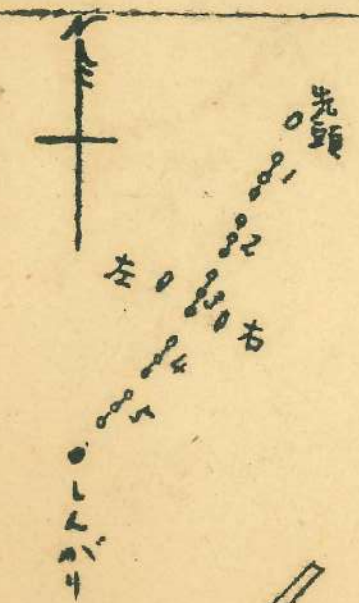 N
先頭
1
2
左
3
右
4
5
しんがり